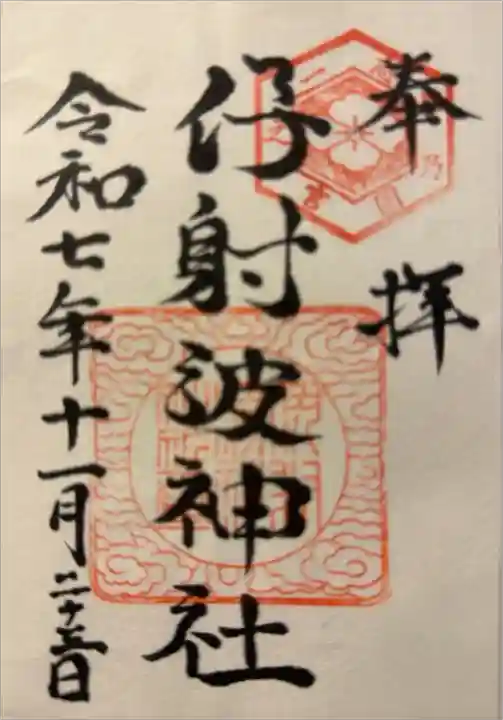 奉拝
伊射波神社
令和七年十一月二十五日